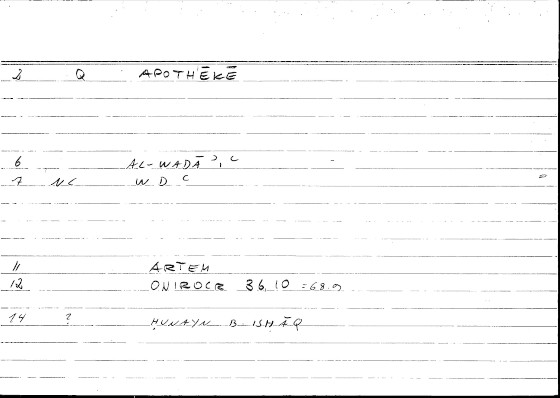 2 Q APOTHĒKĒ
6 AL-WADĀʾ, ʿ
7 NC W D ʿ
11 ARTEM
12 ONIROCR 36,10 = 68.9
14 ? ḤUNAYN B ISḤĀQ